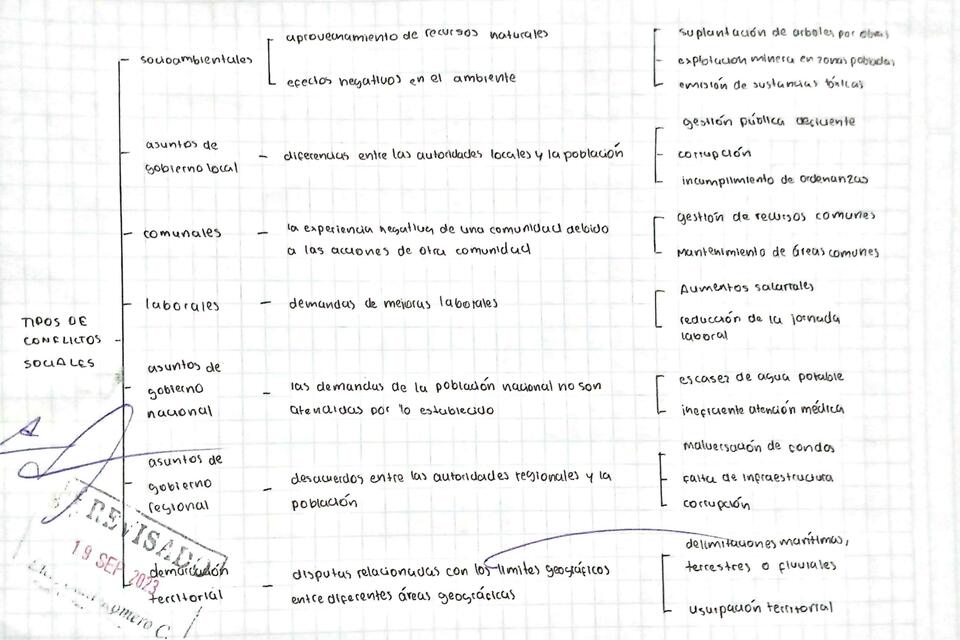 TIPOS DE
CONFLICTOS
SOCIALES
socioambientales
aprovechamiento de recursos naturales
efectos negativos en el ambiente
suplantación de arboles por obras
explotación minera en zonas pobladas
emisión de sustancias tóxicas
asuntos de
gobierno local
diferencias entre las autoridades locales y la población
gestión pública deficiente
corrupción
incumplimiento de ordenanzas
comunales
la experiencia negativa de una comunidad debido
a las acciones de otra comunidad
gestión de recursos comunes
mantenimiento de áreas comunes
laborales
demandas de mejoras laborales
Aumentos salariales
reducción de la jornada
laboral
asuntos de
gobierno
nacional
las demandas de la población nacional no son
atendidas por lo establecido
escasez de agua potable
ineficiente atención médica
asuntos de
gobierno
regional
desacuerdos entre las autoridades regionales y la
población
malversación de fondos
falta de infraestructura
corrupción
demarcación
territorial
disputas relacionadas con los límites geográficos
entre diferentes áreas geográficas
delimitaciones marítimas,
terrestres o fluviales
usurpación territorial
REVISADO
19 SEP 2023
Romero C.